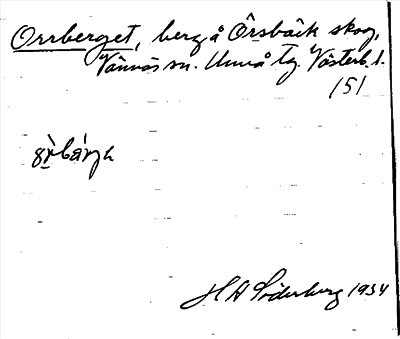 Orrberget, berg å Örsbäck skog,
Vännäs sn. Umeå tg. Västerb. l.
151
H A Söderberg 1934